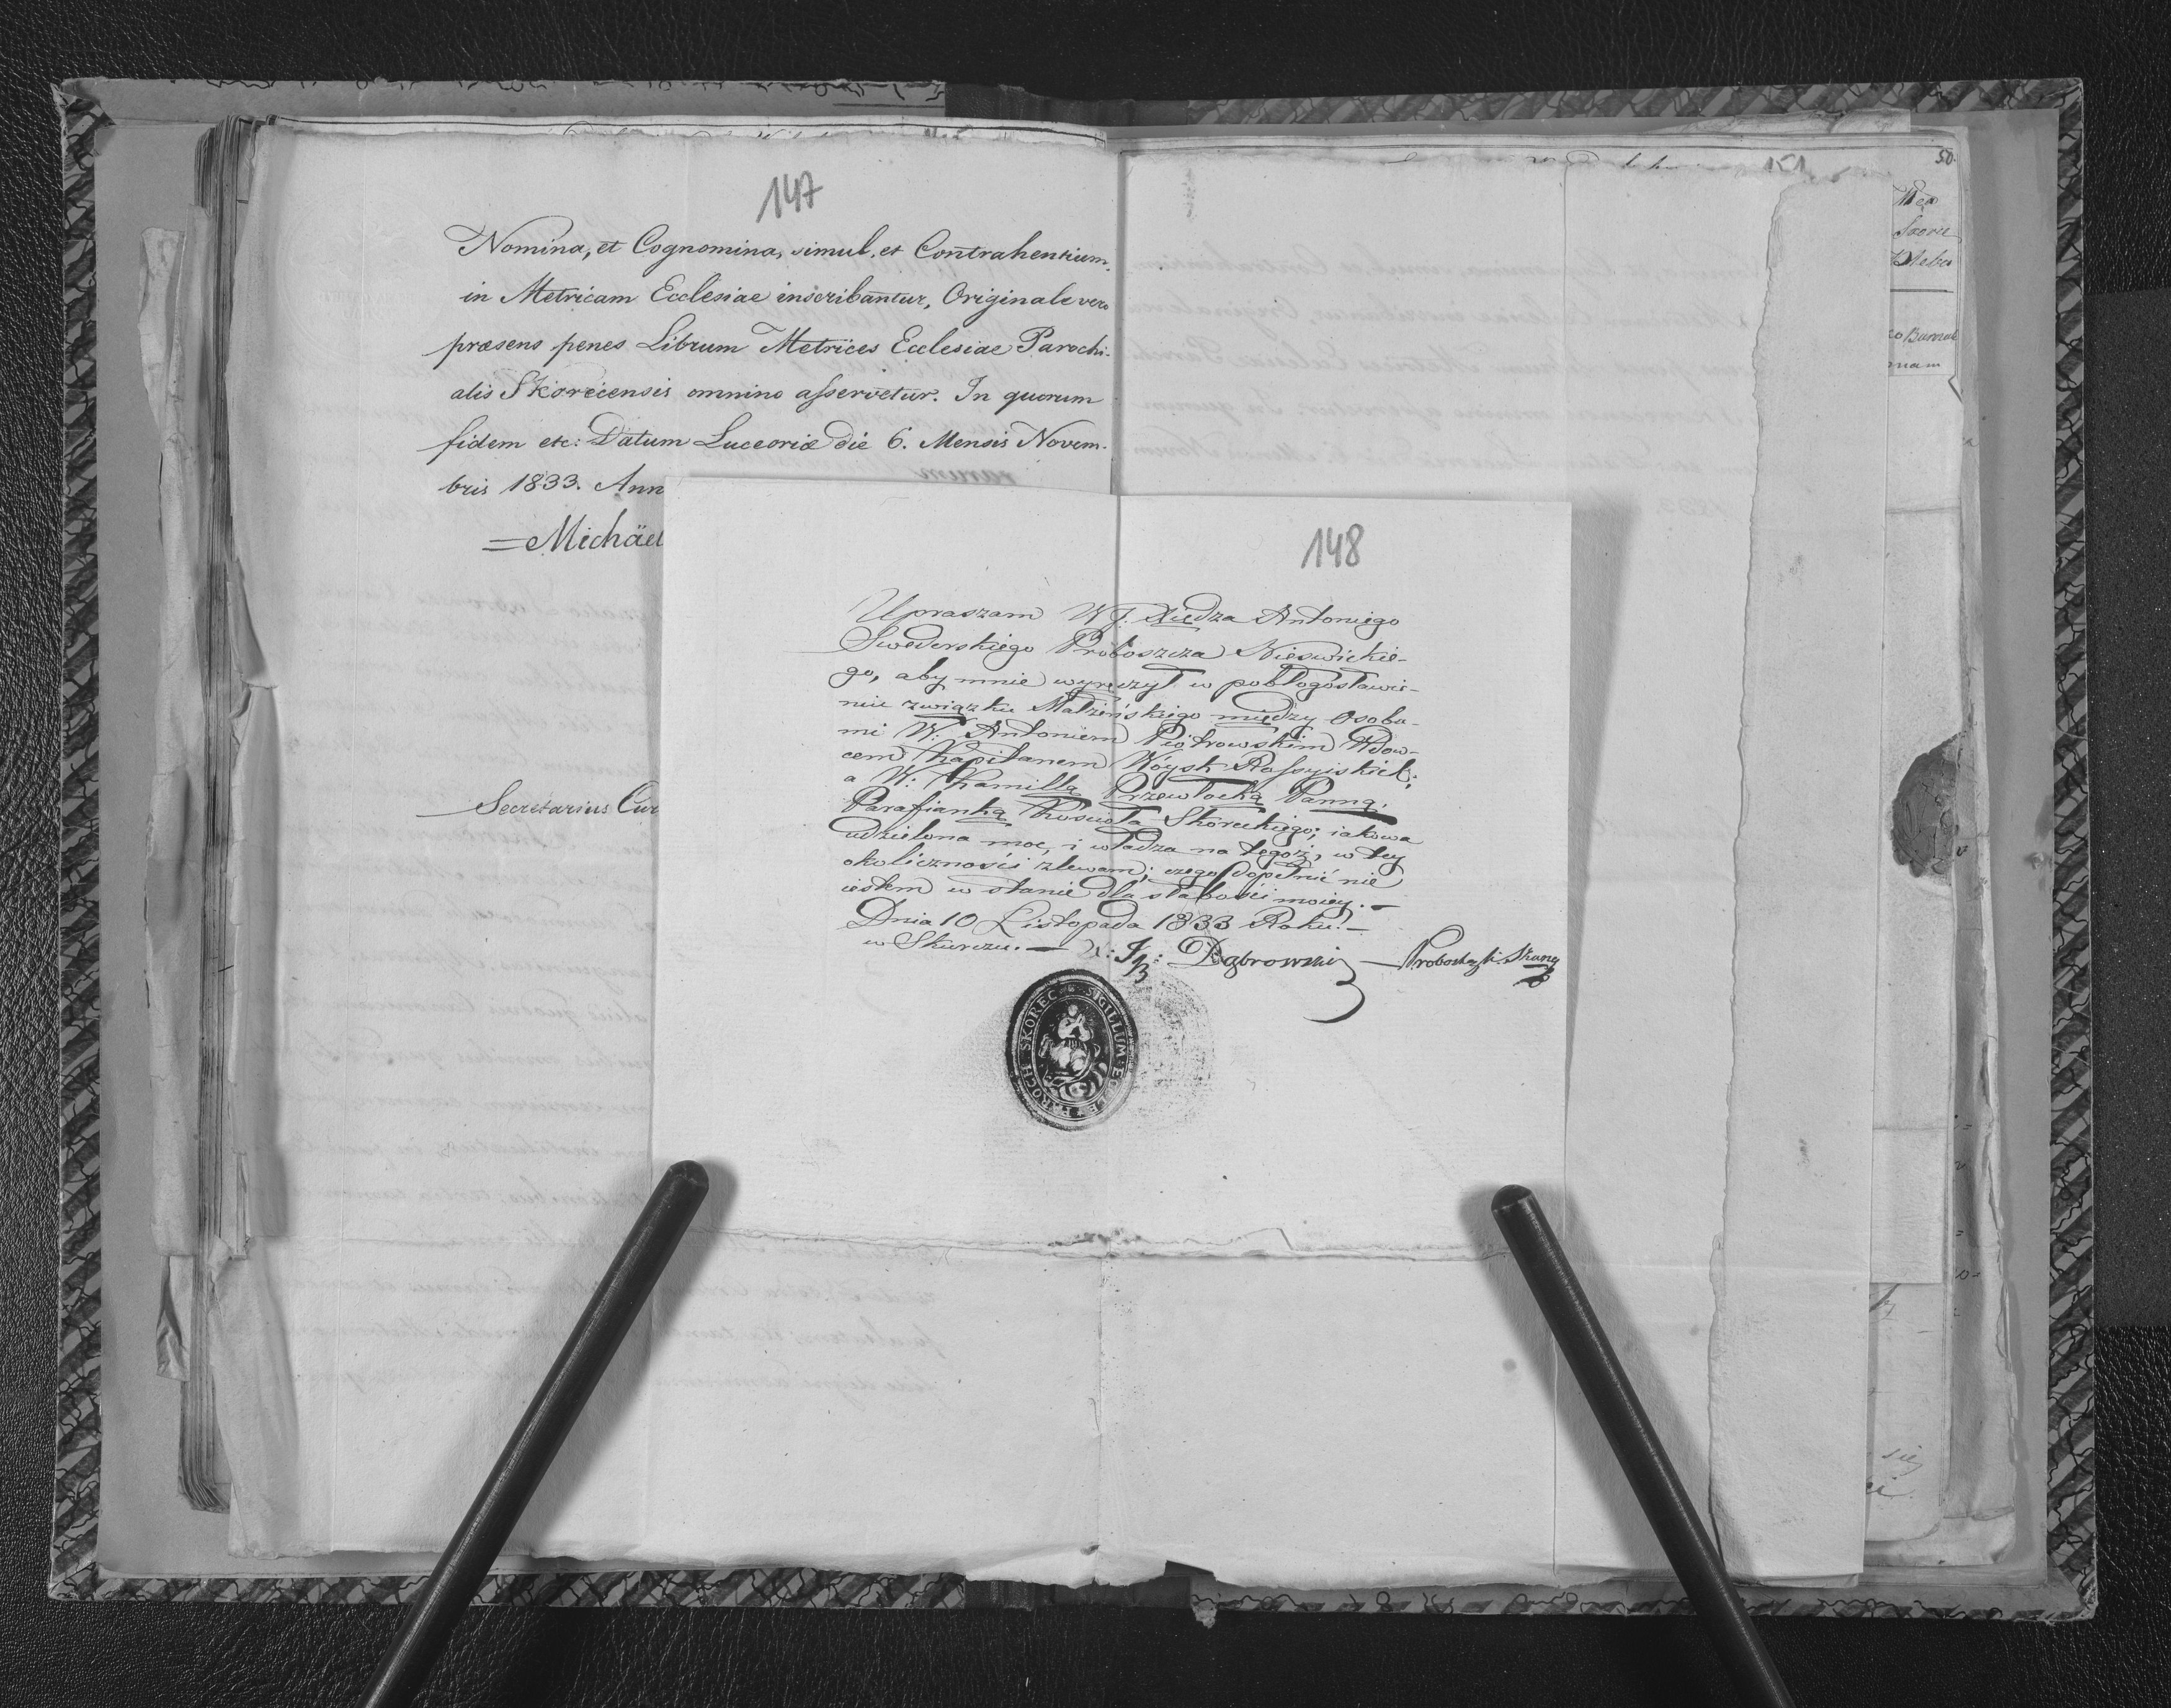 147
Nomina, et Cognomina, simul, et Contrahentium
in Metricam Ecclesiae inscribantur, Originale vero
praesens penes Librum Metrices Ecclesiae Parochi-
alis Skorecensis omnino asservetur. In quorum
fidem etc: Datum Luceoriae die 6. Mensis Novem-
bris 1833. Ann
= Michäel
Secretarius Cur
148
Upraszam WJ. Xiędza Antoniego
Swederskiego Proboszcza Nieswickie-
go, aby mnie wyręczył w pobłogosławie-
niu związku Małżeńskiego między Osoba-
mi W. Antonim Piotrowskim Wdow-
cem Kapitanem Wóysk Rossyiskich,
a W: Kamillą Przewłocką Panną,
Parafianką Kościoła Skóreckiego; iakowa
udzielona moc, i władza na tegoż, w tey
okoliczności zlewam; czego dopełnić nie
iestem w stanie dla słabości moiey. —
Dnia 10 Listopada 1833 Roku. —
w Skurczu. — X: Dąbrowski Proboszcz
SIGILLUM ECCLE PAROCH SKOREC
151
50.